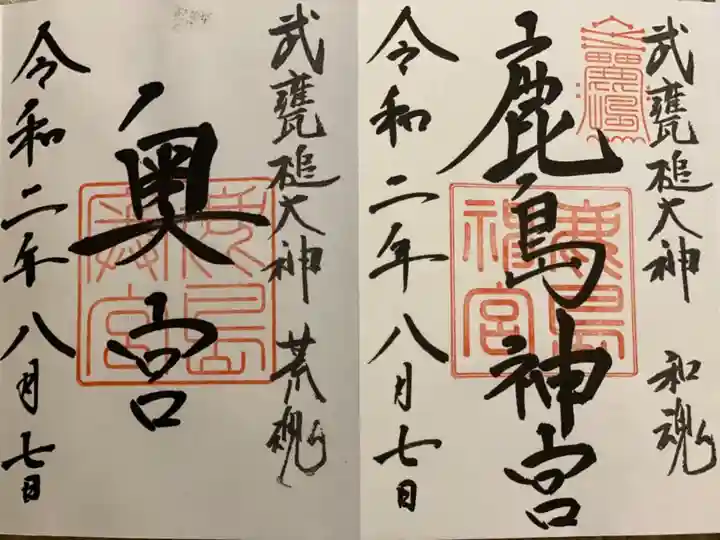 武甕槌大神 和魂
鹿島神宮
令和二年八月七日
武甕槌大神 荒魂
奥宮
令和二年八月七日